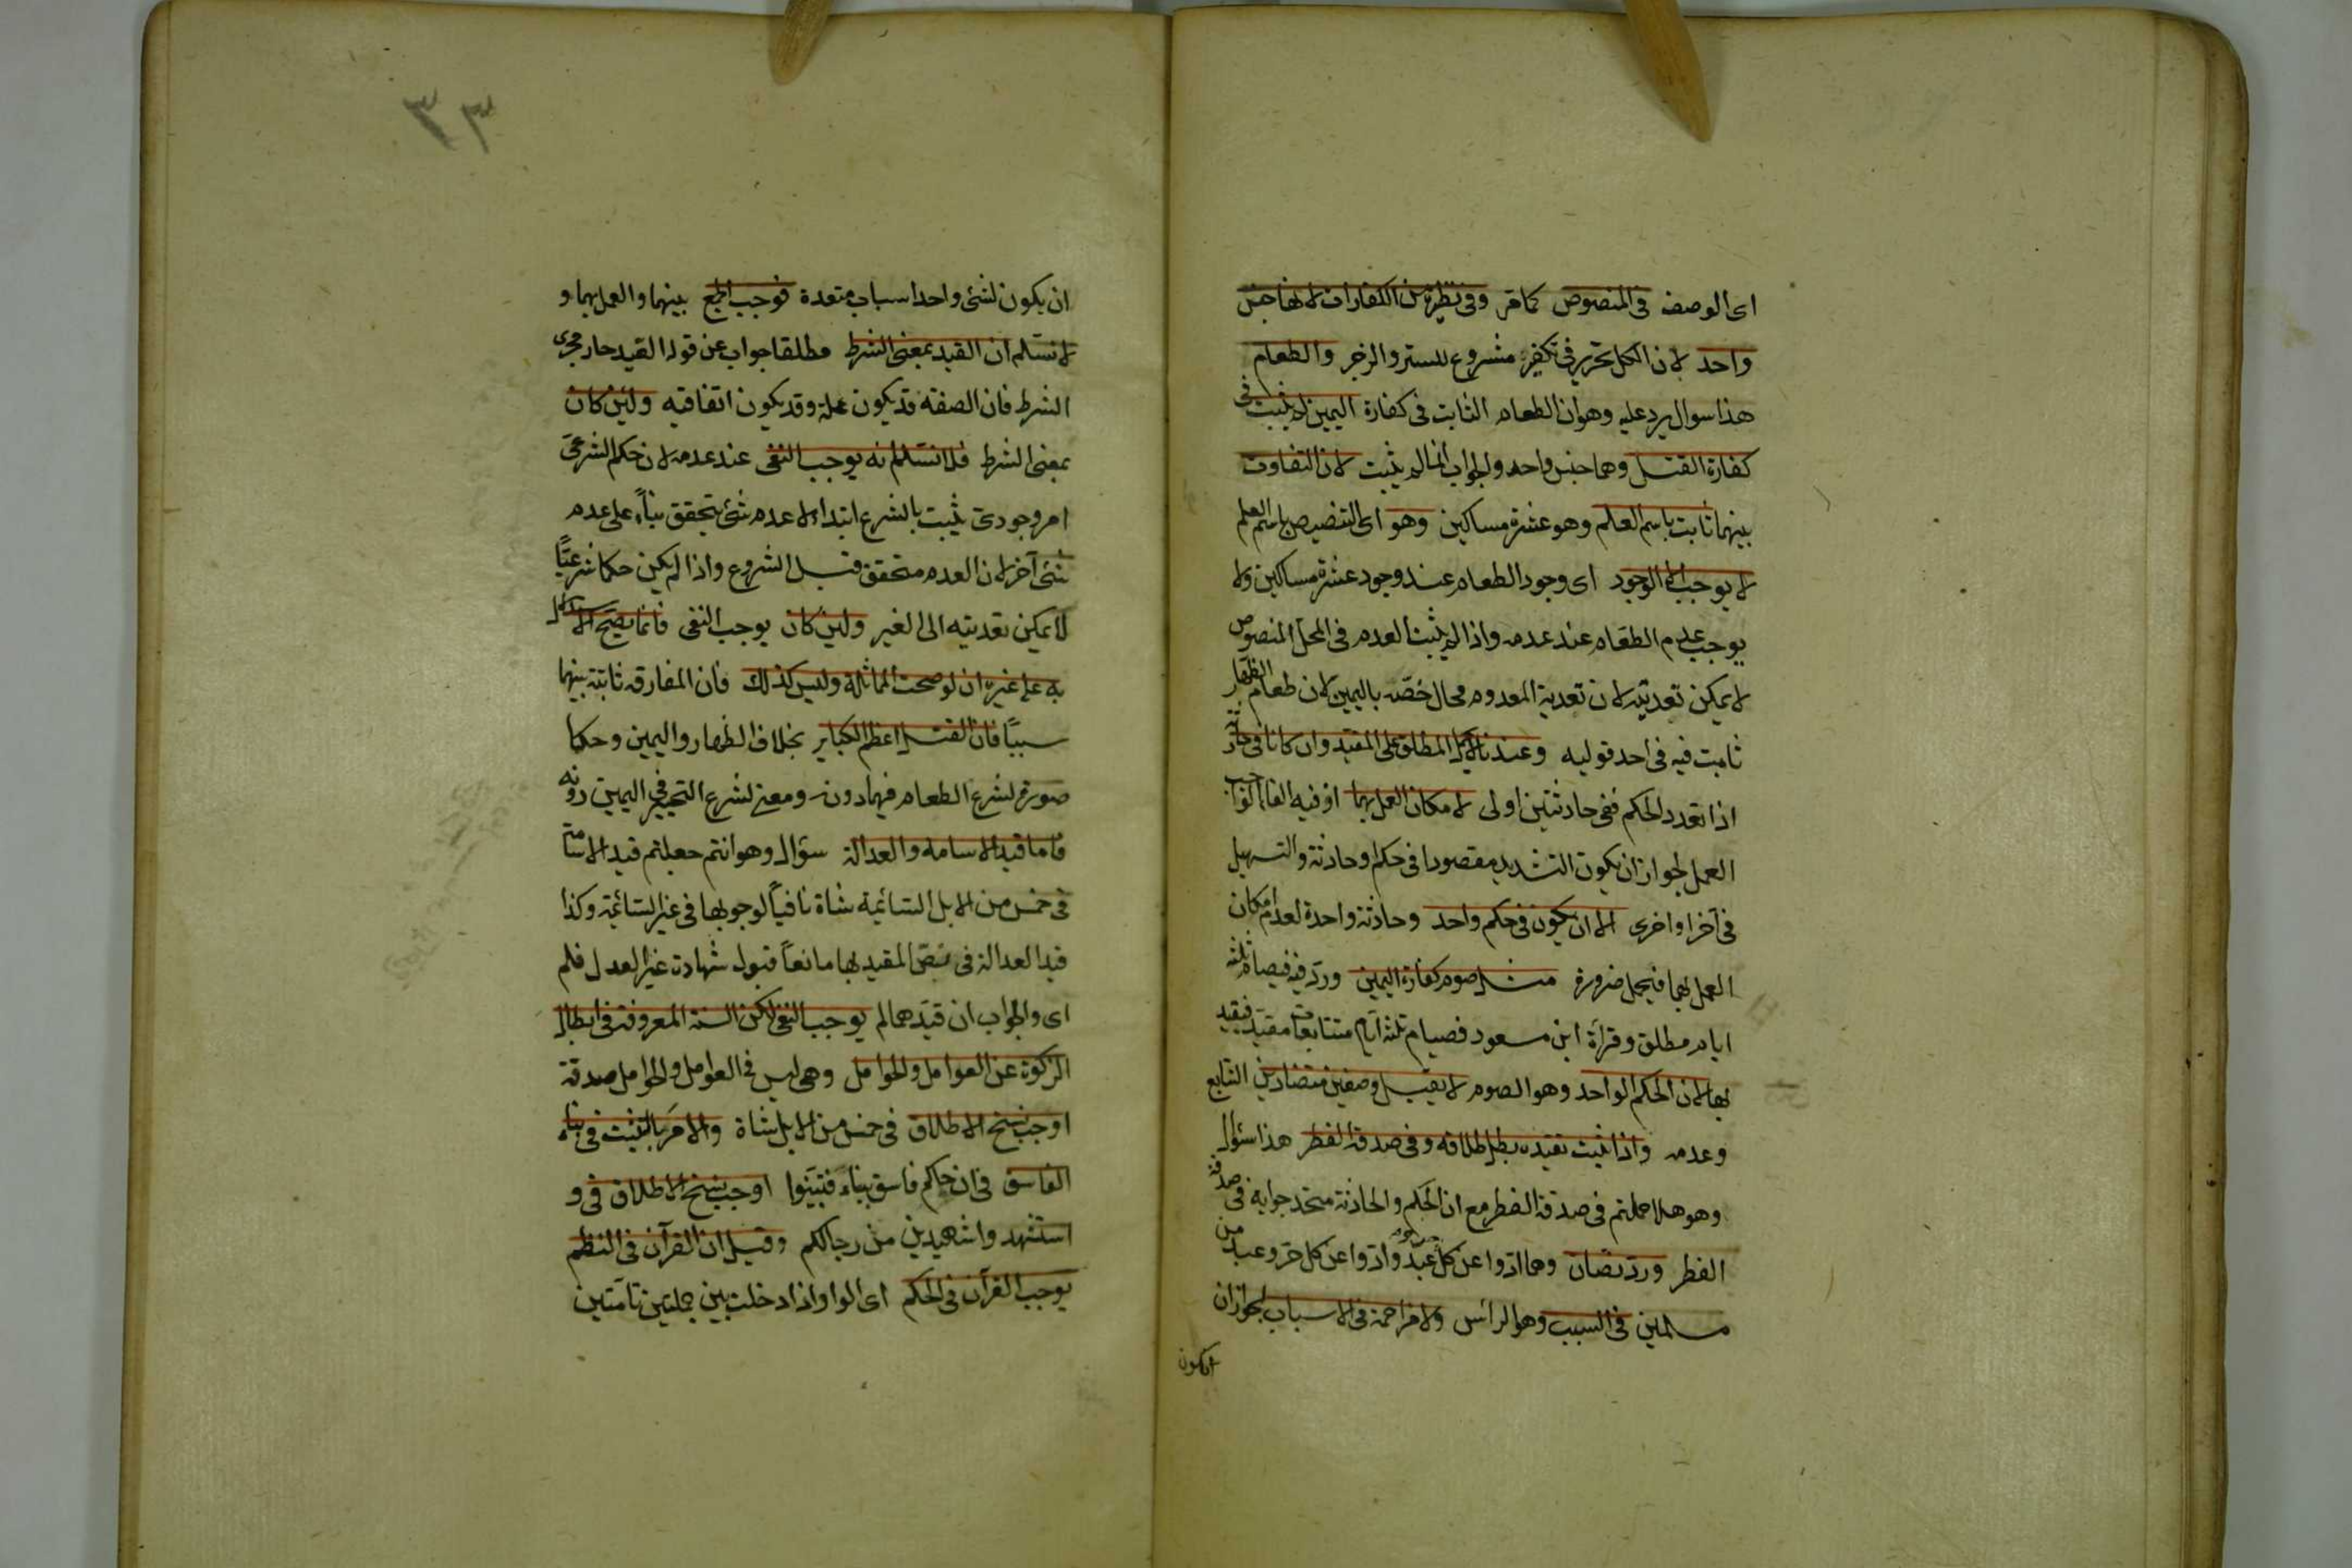 اى الوصف فى المنصوص كما مر وفى نظيره من الكفارات لانها جنس
واحد لان الكل تحرير فى تكفير مشروع للستر والزجر والطعام
هذا سوال يرد عليه وهو ان الطعام الثابت فى كفارة اليمين لم يثبت فى
كفارة القتل وهما جنس واحد والجواب انما لم يثبت لان التفاوت
بينهما ثابت باسم العلم وهو عشرة مساكين وهو اى التنصيص باسم العلم
لا يوجب الا الوجود اى وجود الطعام عند وجود عشرة مساكين ولا
يوجب عدم الطعام عند عدمه واذا لم يثبت العدم فى المحل المنصوص
لا يمكن تعديته لان تعدية المعدوم محال خصه باليمين لان طعام الظهار
ثابت فيه فى احد قوليه وعندنا لا يحمل المطلق على المقيد وان كانا فى حادثة
اذا تعدد الحكم ففى حادثتين اولى لامكان العمل بهما اذ فيه الغا الواجب
العمل لجواز ان يكون التشديد مقصودا فى حكم او حادثة والتسهيل
فى آخر او اخرى الا ان يكون فى حكم واحد وحادثة واحدة لعدم امكان
العمل بهما فيحمل ضرورة مثل صوم كفارة اليمين ورد فيه فصيام ثلثة
ايام مطلق وقرأة ابن مسعود فصيام ثلثة ايام متتابعات مقيد فيقيد
بها لان الحكم الواحد وهو الصوم لا يقبل وصفين متضادين التتابع
وعدمه واذا ثبت تقيده بطل اطلاقه وفى صدقة الفطر هذا سئوال
وهو هلا حملتم فى صدقة الفطر مع ان الحكم والحادثة متحد جوابه فى صدقة
الفطر ورد نصان وهما ادوا عن كل حر وعبد وادوا عن كل حر وعبد من
مسلمين فى السبب وهو الرأس ولا مزاحمة فى الاسباب لجواز ان
ان يكون
٣٣
ان يكون لشئ واحد اسباب متعددة فوجب الجمع بينهما والعمل بهما و
لا نسلم ان القيد بمعنى الشرط مطلقا جواب عن قوله القيد جار مجرى
الشرط فان الصفة قد يكون علة وقد يكون اتفاقيه ولئن كان
بمعنى الشرط فلا نسلم انه يوجب النفى عند عدمه لان حكم الشرعى
امر وجودى يثبت بالشرع ابتداء لا عدم شئ يتحقق بناءً على عدم
شئ آخر لان العدم متحقق قبل الشروع واذا لم يكن حكما شرعيًا
لا يمكن تعديته الى الغير ولئن كان يوجب النفى فانما يصح الاستدلال
به على غيره ان لو صحت المماثلة وليس كذلك فان المفارقه ثابتة بينهما
سببًا فان القتل اعظم الكباير بخلاف الظهار واليمين وحكما
صورة لشرع الطعام فيهما دونه ومعنى لشرع التخيير فى اليمين دونه
فاما قيد الاسامة والعدالة سؤال وهو انتم جعلتم قيد الاسامة
فى خمس من الابل السائمة شاة نافياً لوجوبها فى غير السائمة وكذا
قيد العدالة فى نص المقيد بها مانعاً قبول شهادة غير العدل فلم
اى والجواب ان قيدهما لم يوجب النفى لكن السنة المعروفة فى ابطال
الزكوة عن العوامل والحوامل وهى ليس فى العوامل والحوامل صدقة
اوجب نسخ الاطلاق فى خمس من الابل شاة والامر بالتثبت فى نباء
الفاسق فى ان جاكم فاسق بنباء فتبينوا اوجب نسخ الاطلاق فى و
استشهدوا شهيدين من رجالكم وقيل ان القرآن فى النظم
يوجب القرآن فى الحكم اى الواو اذا دخلت بين جملتين تامتين